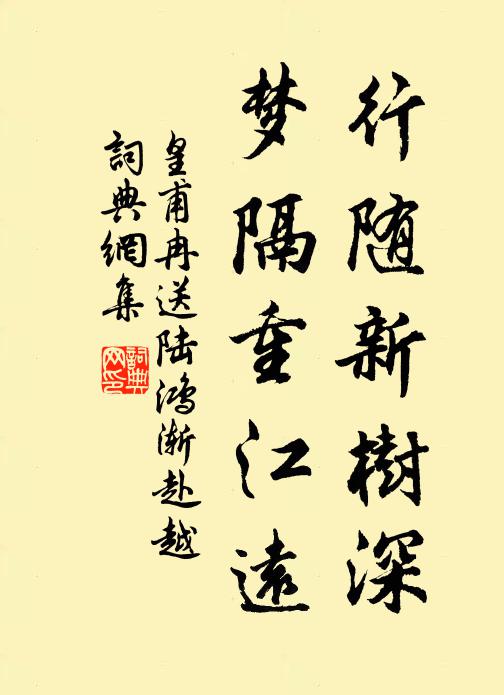 行随新樹深
梦隔重江遠
皇甫冉送陆鸿渐赴越
詞典網集
詞典網印